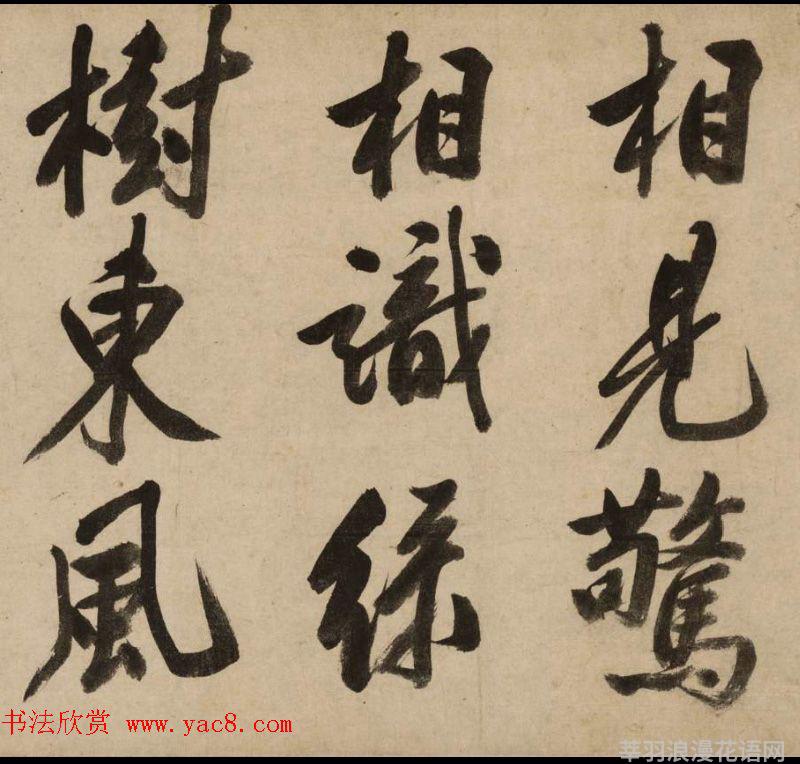 相見驚
相識緑
樹東風
书法欣赏 www.yac8.com
莘羽浪漫花语网